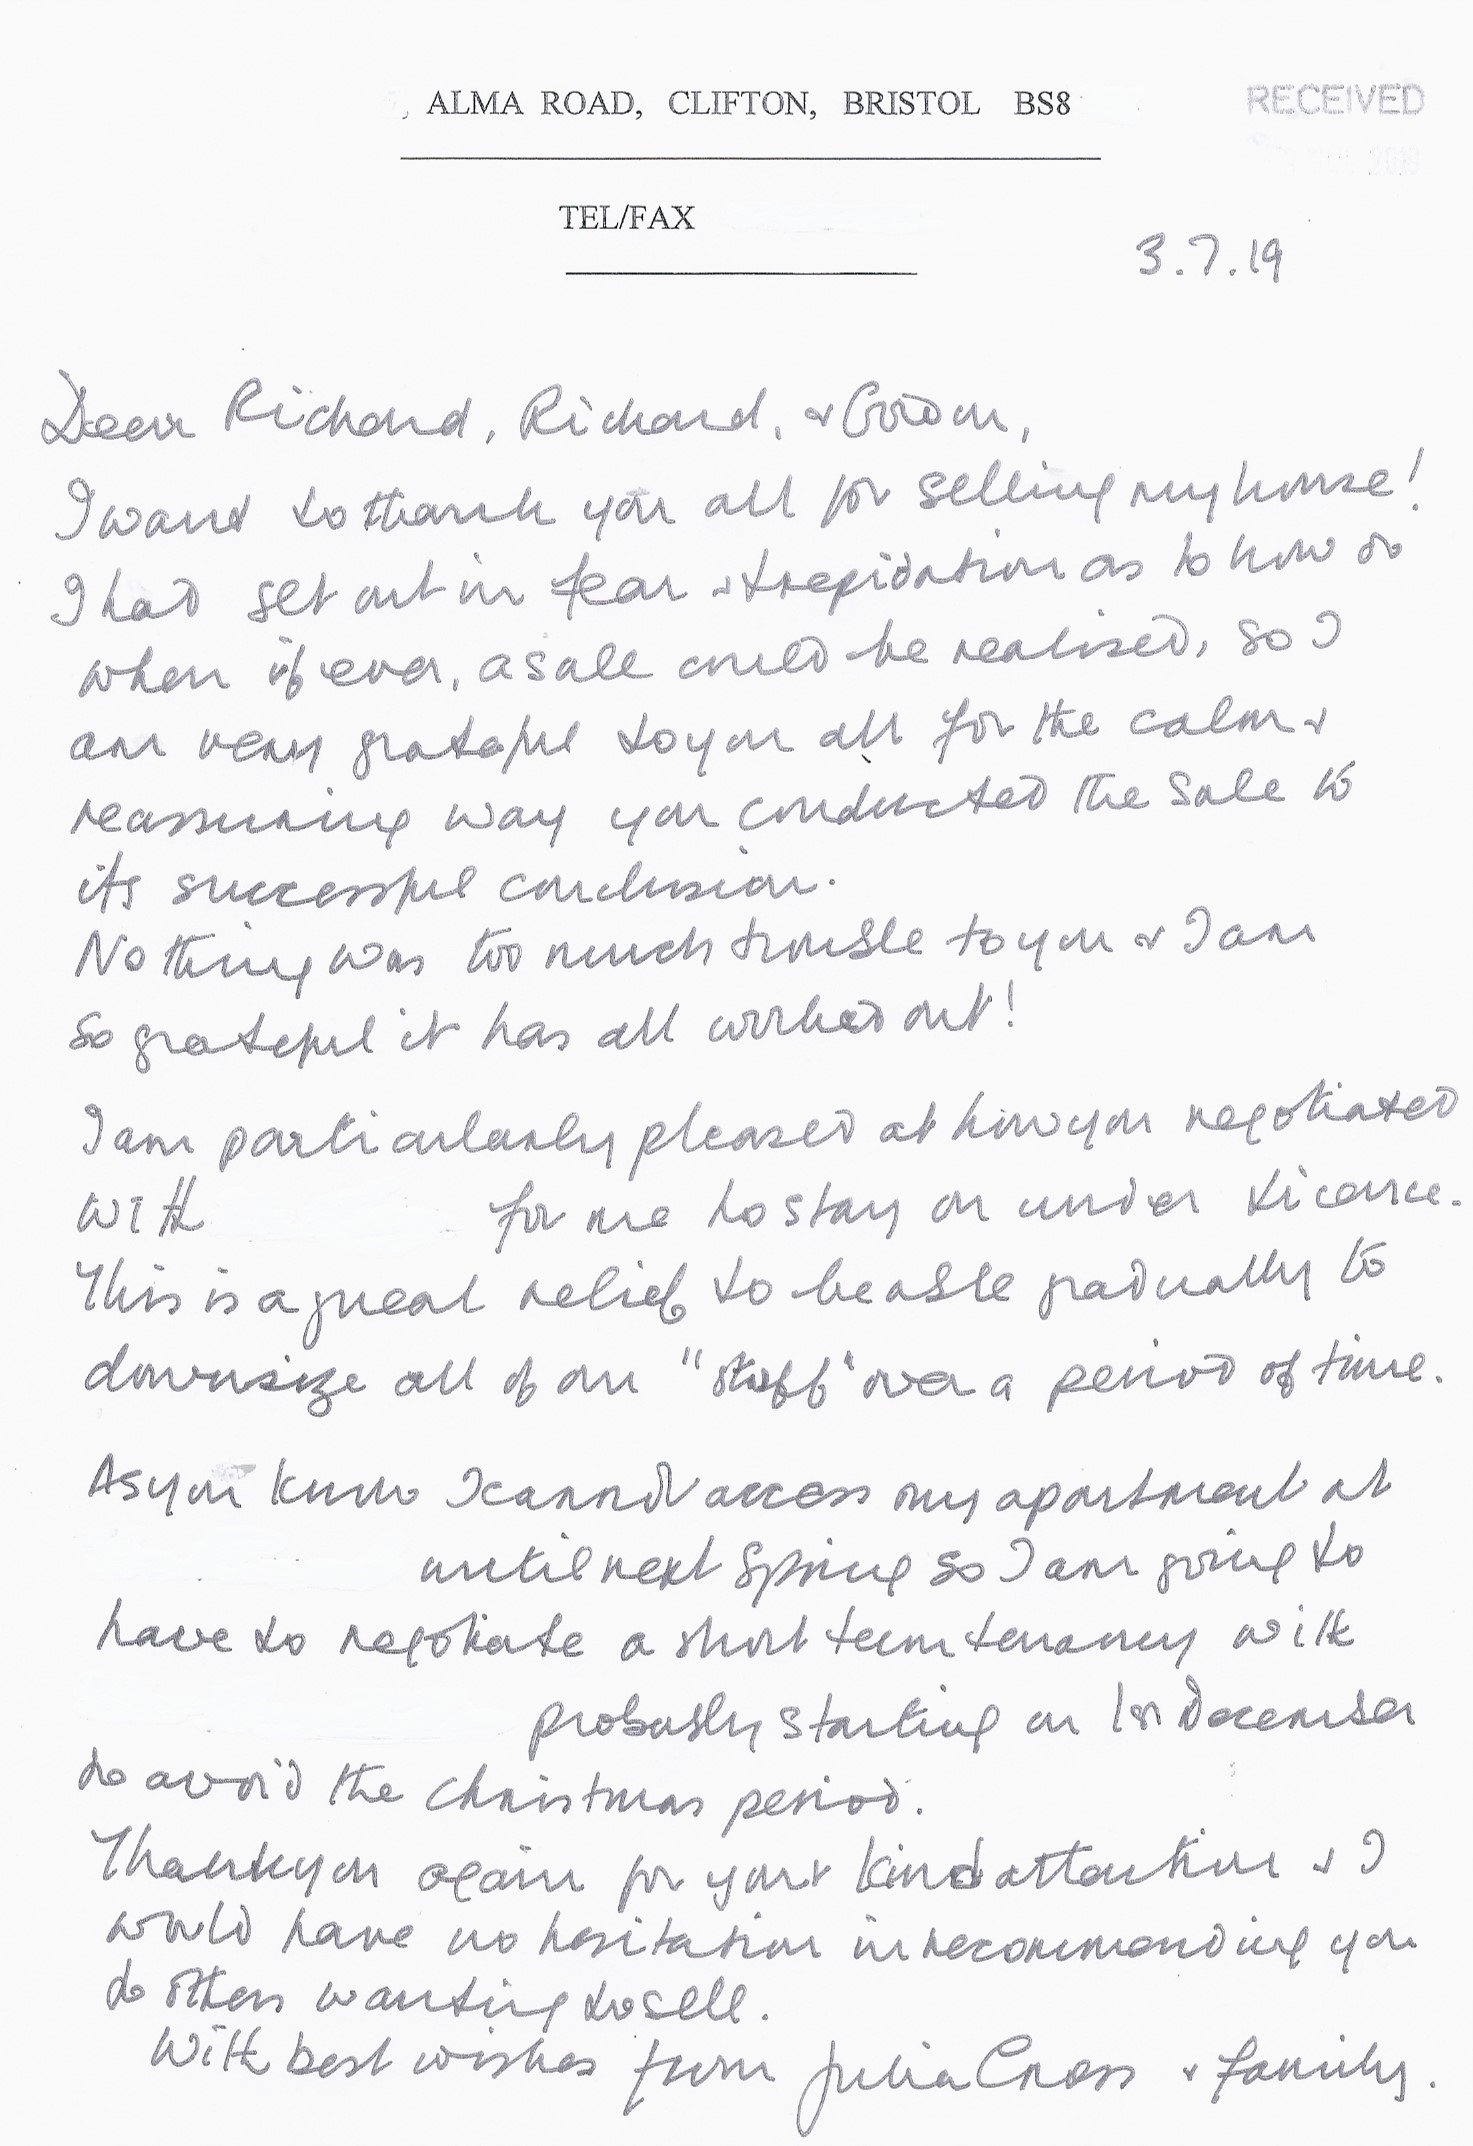 ALMA ROAD, CLIFTON, BRISTOL BS8
RECEIVED
TEL/FAX
3.7.19
Dear Richard, Richard, & Gordon,
I want to thank you all for selling my house!
I had set out in fear & trepidation as to how or
when if ever, a sale could be realised, so I
am very grateful to you all for the calm &
reassuring way you conducted the sale to
its successful conclusion.
Nothing was too much trouble to you & I am
so grateful it has all worked out!
I am particularly pleased at how you negotiated
with for me to stay on under licence.
This is a great relief to be able gradually to
downsize all of our "stuff" over a period of time.
As you know I cannot access my apartment at
until next Spring so I am going to
have to negotiate a short term tenancy with
probably starting on 1st December
to avoid the Christmas period.
Thankyou again for your kind attention & I
would have no hesitation in recommending you
to others wanting to sell.
With best wishes from Julia Cross & family.